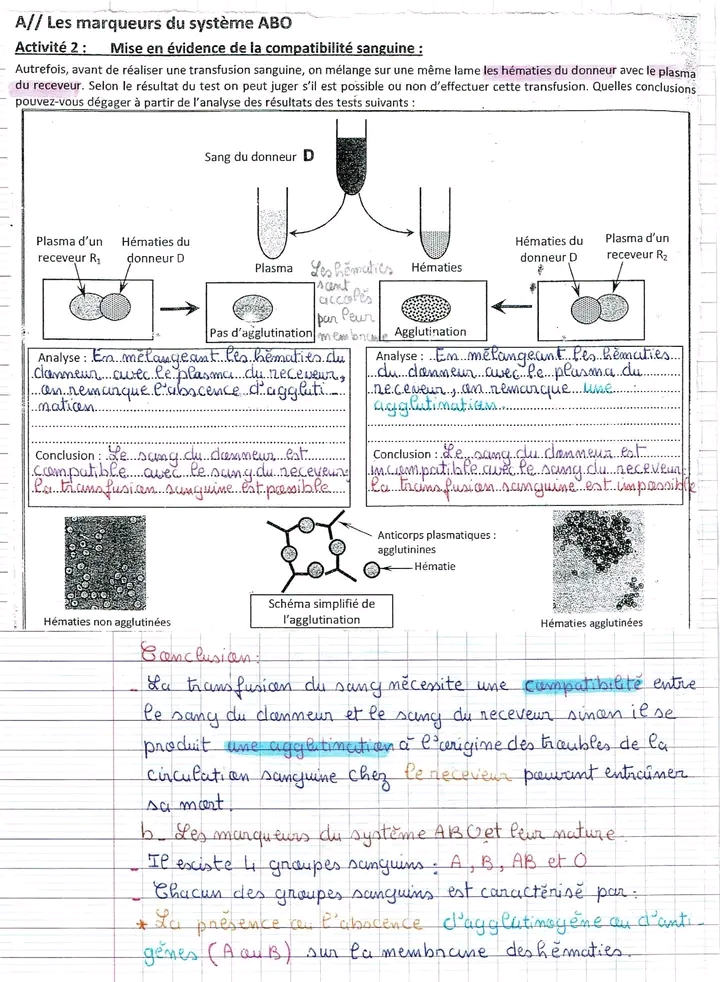 A// Les marqueurs du système ABO
Activité 2 : Mise en évidence de la compatibilité sanguine :
Autrefois, avant de réaliser une transfusion sanguine, on mélange sur une même lame les hématies du donneur avec le plasma
du receveur. Selon le résultat du test on peut juger s'il est possible ou non d'effectuer cette transfusion. Quelles conclusions
pouvez-vous dégager à partir de l'analyse des résultats des tests suivants :
Sang du donneur D
Plasma d'un
receveur R₁
Hématies du
donneur D
Plasma
Hématies
Hématies du
donneur D
Plasma d'un
receveur R₂
Les hématies
sont
accolés
par leur
membrane
Pas d'agglutination
Agglutination
Analyse : En mélangeant les hématies du
donneur avec le plasma du receveur,
on remarque l'abscence d'aggluti-
nation
Conclusion : Le sang du donneur est
compatible avec le sang du receveur
la transfusion sanguine est possible
Analyse : En mélangeant les hématies
du donneur avec le plasma du
receveur, on remarque une
agglutination
Conclusion : Le sang du donneur est
incompatible avec le sang du receveur
la transfusion sanguine est impossible
Anticorps plasmatiques :
agglutinines
Hématie
Schéma simplifié de
l'agglutination
Hématies non agglutinées
Hématies agglutinées
Conclusion :
- La transfusion du sang nécessite une compatibilité entre
le sang du donneur et le sang du receveur sinon il se
produit une agglutination à l'origine des troubles de la
circulation sanguine chez le receveur pouvant entraîner
sa mort.
b- Les marqueurs du système ABO et leur nature
- Il existe 4 groupes sanguins : A, B, AB et O
- Chacun des groupes sanguins est caractérisé par :
* La présence ou l'abscence d'agglutinogène ou d'anti-
gènes (A ou B) sur la membrane des hématies.